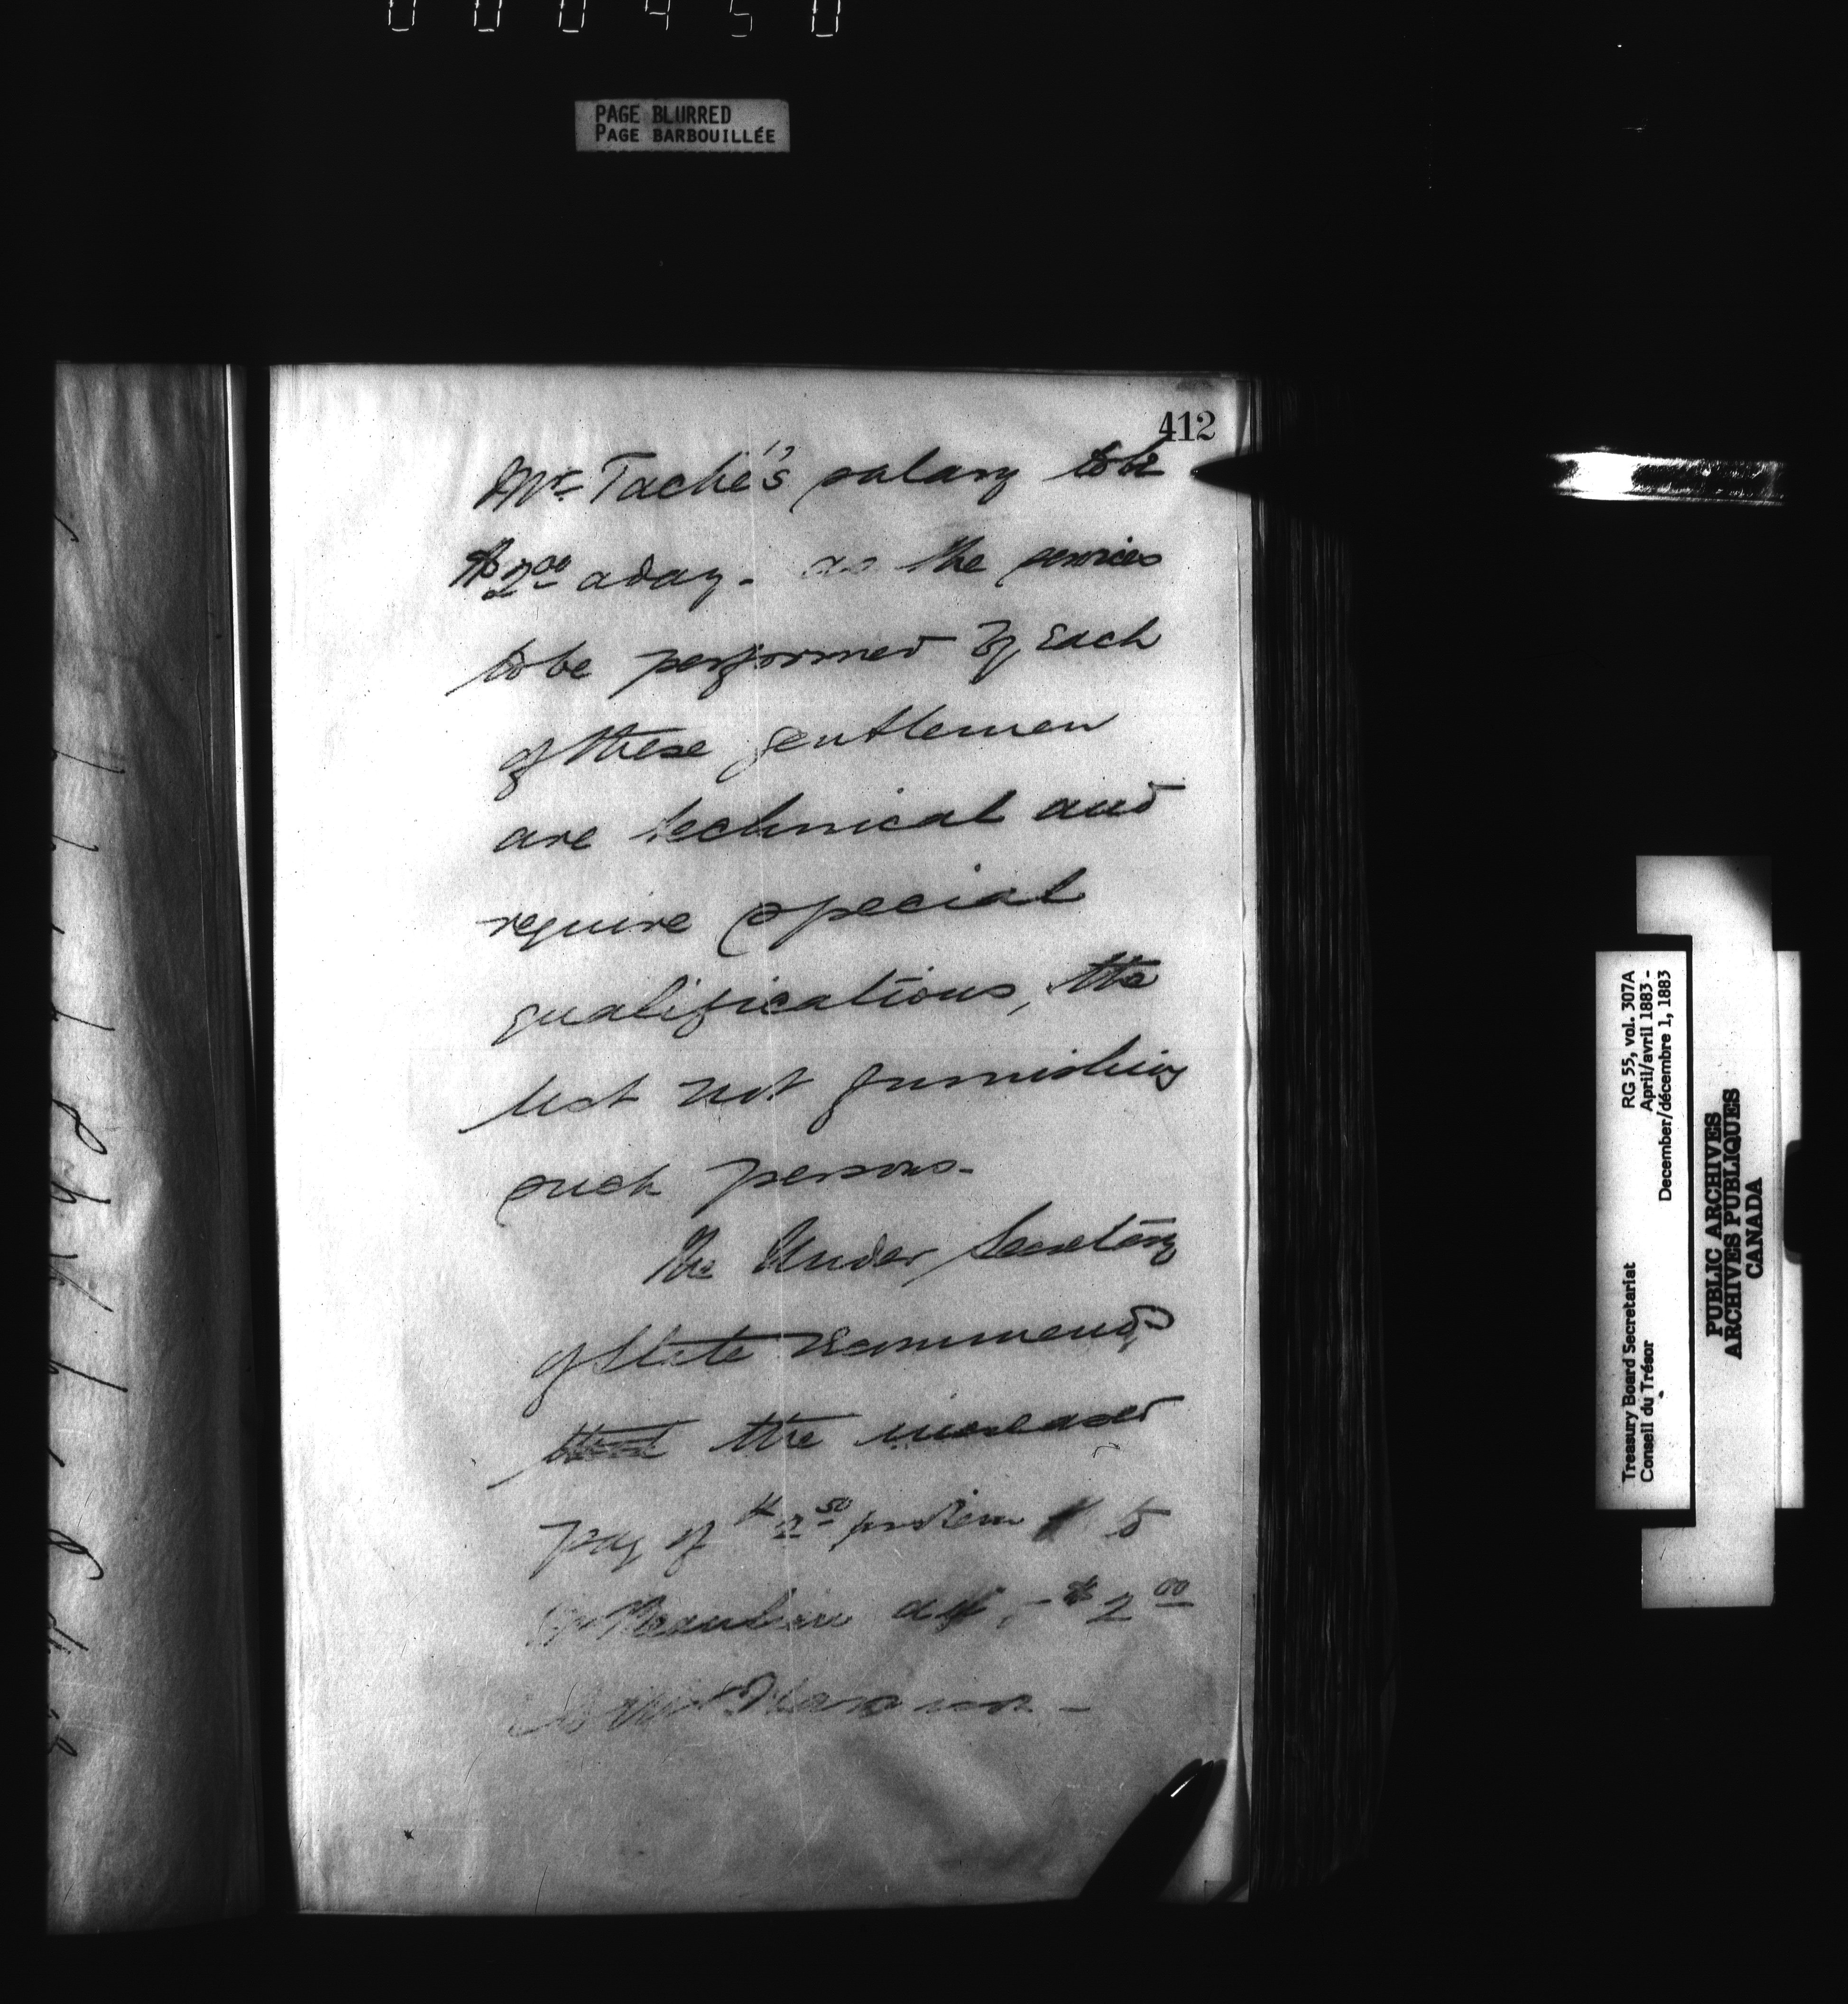 000450
PAGE BLURRED
PAGE BARBOUILLÉE
412
Mr. Taché's salary to be
$2.00 a day - as the services
to be performed by each
of these gentlemen
are technical and
require special
qualifications, the
list not furnishing
such persons -
The Under Secretary
of State recommends
the increased
pay of $2.50 per diem to
Mr - $2.00
to Mr
Treasury Board Secretariat
Conseil du Trésor
RG 55, vol. 307A
April/avril 1883 -
December/décembre 1, 1883
PUBLIC ARCHIVES
ARCHIVES PUBLIQUES
CANADA